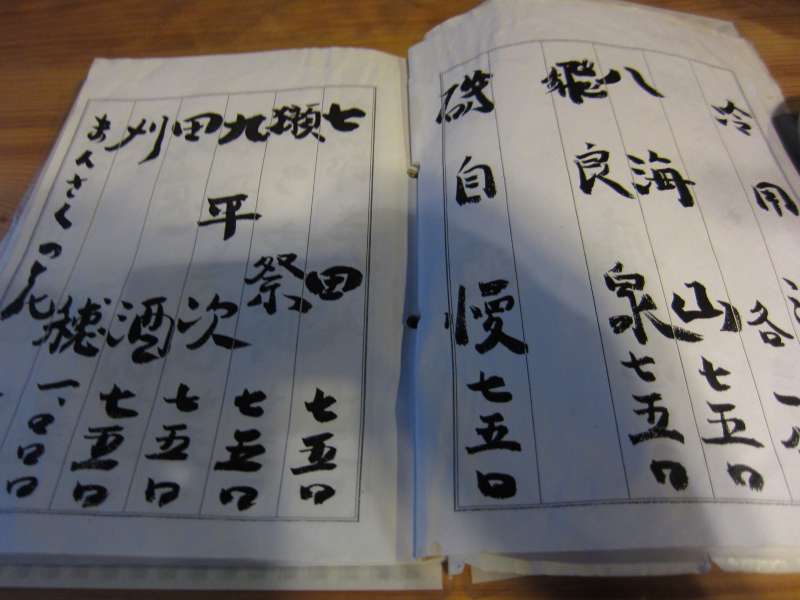 冷用 各一
八海山 七五〇
飛良泉 七五〇
磯自慢 七五〇
七田 七五〇
獺祭 七五〇
九平次 七五〇
田酒 七五〇
刈穂 一、〇〇〇
まんさくの花